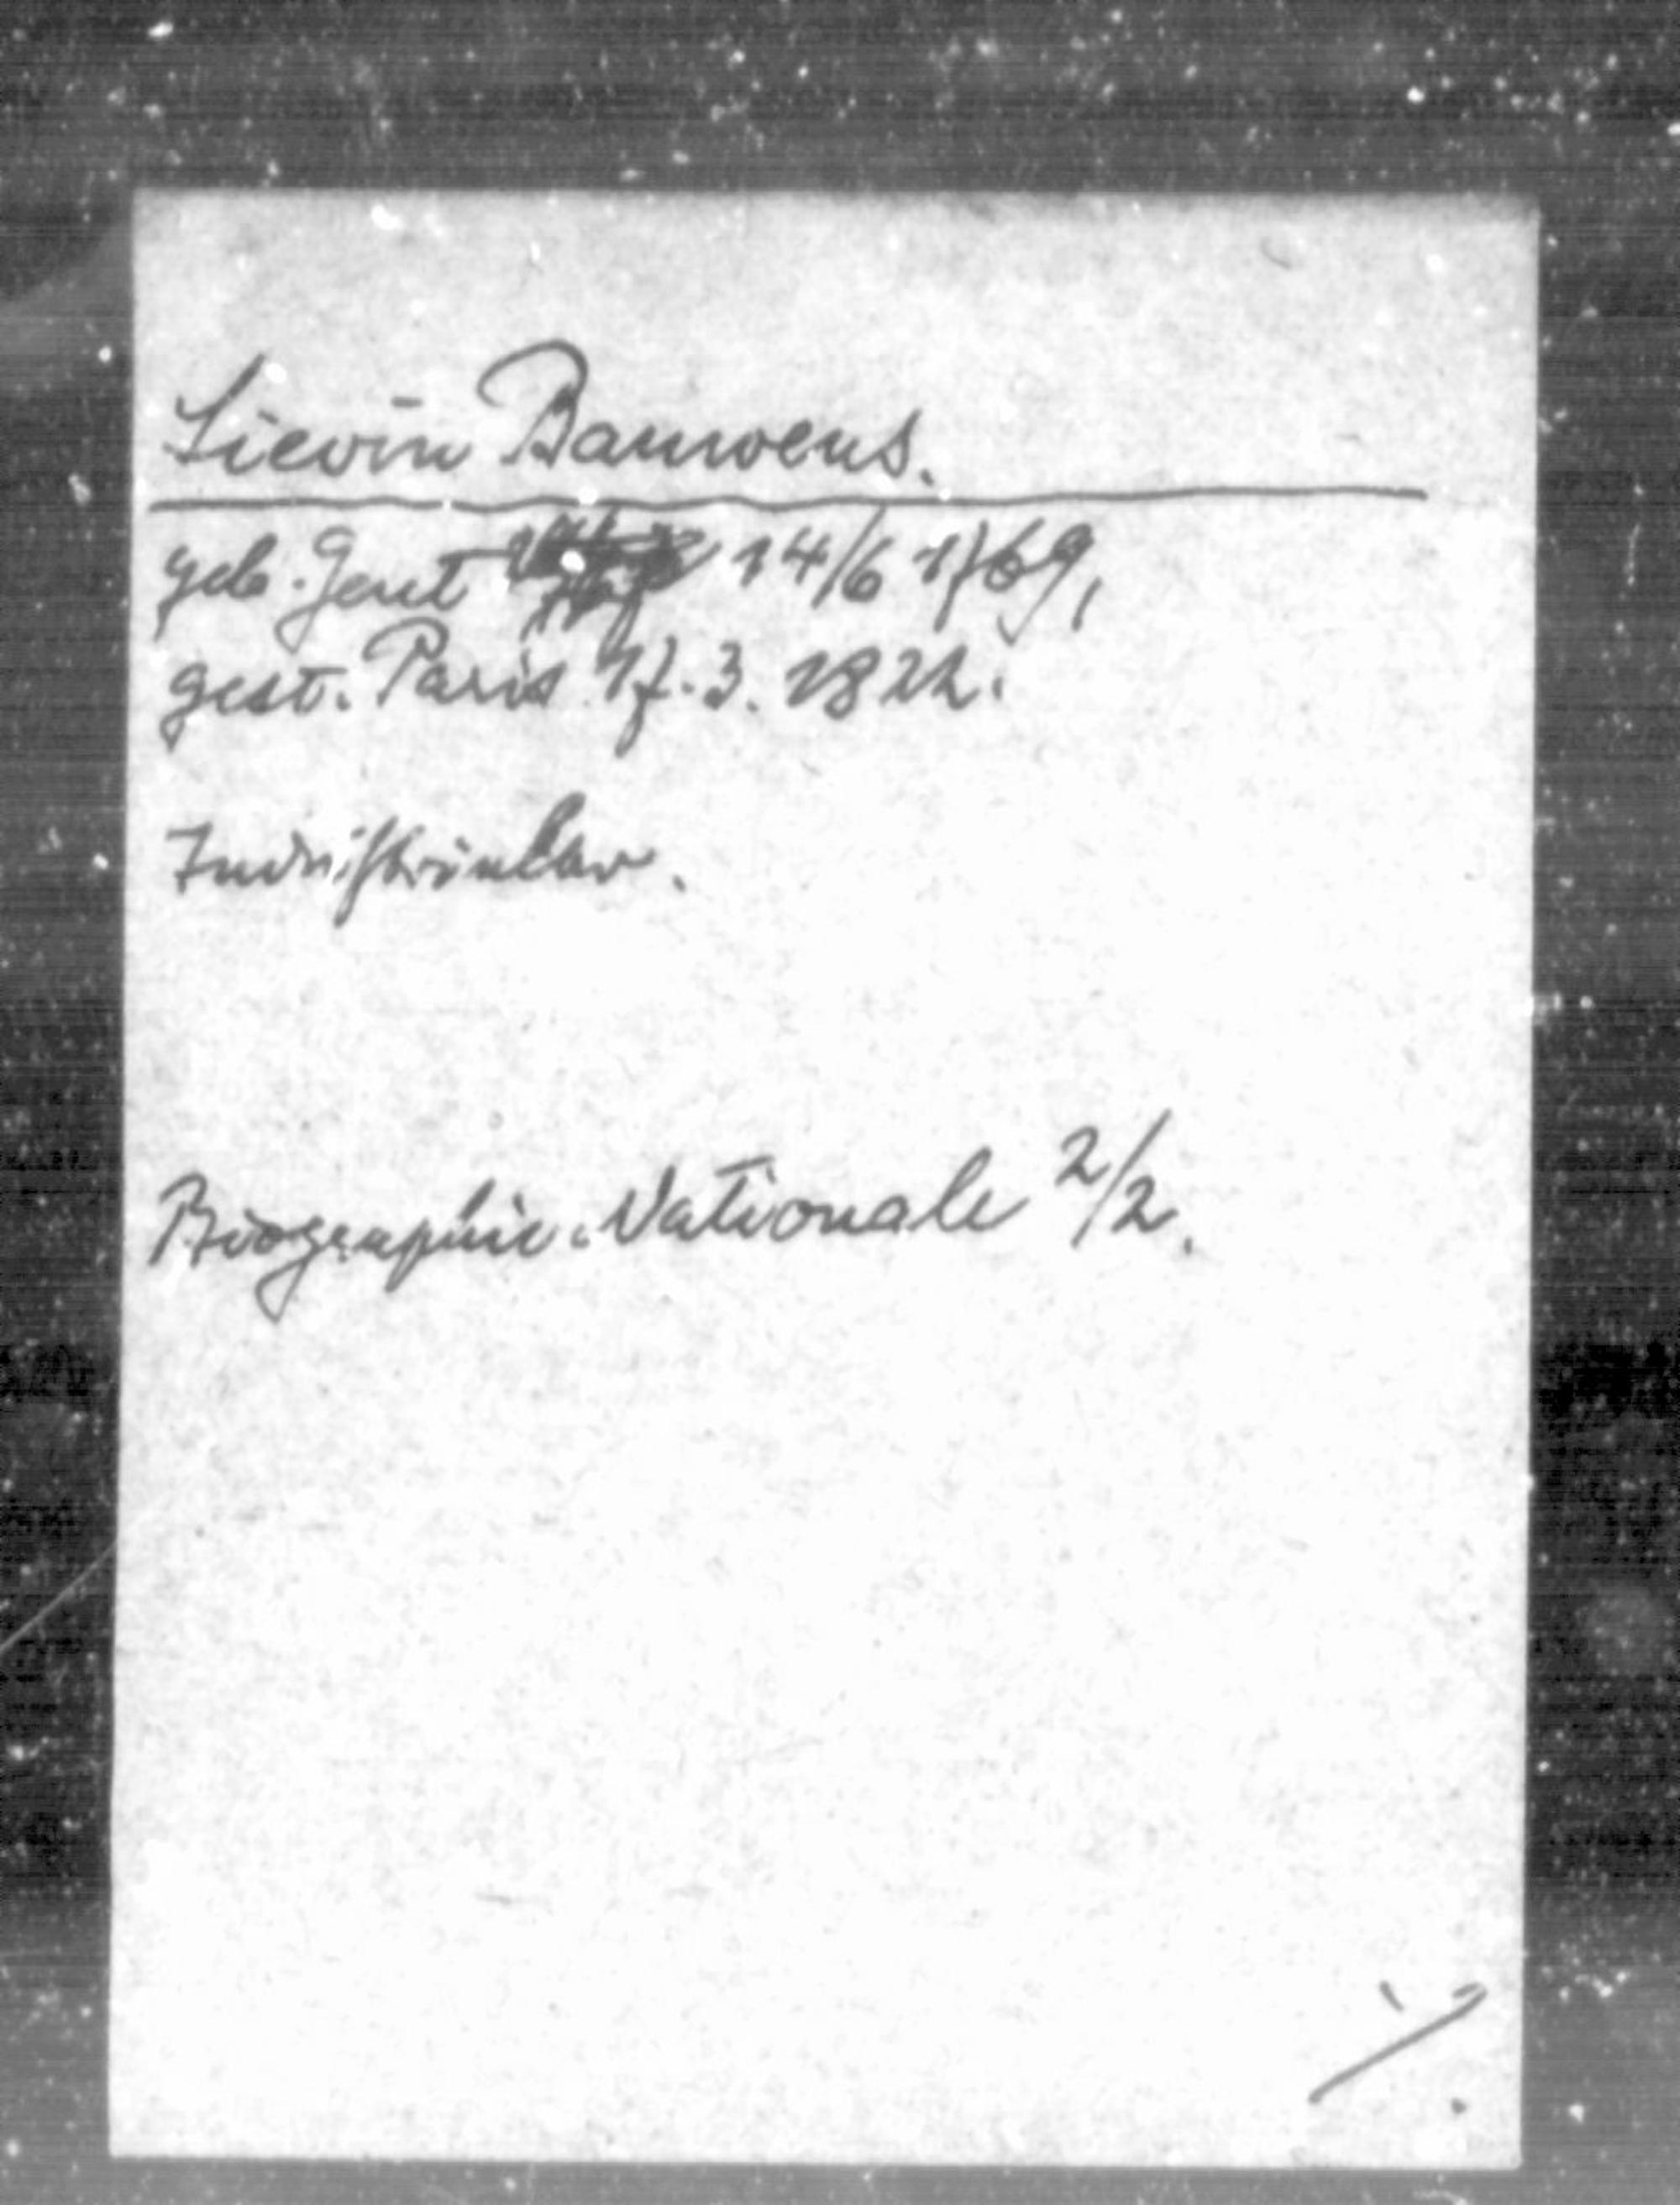 Lievin Bauwens.
geb. Gent 14/6 1769,
gest. Paris 17. 3. 1822.
Industrieller.
Biographie Nationale 2/2.